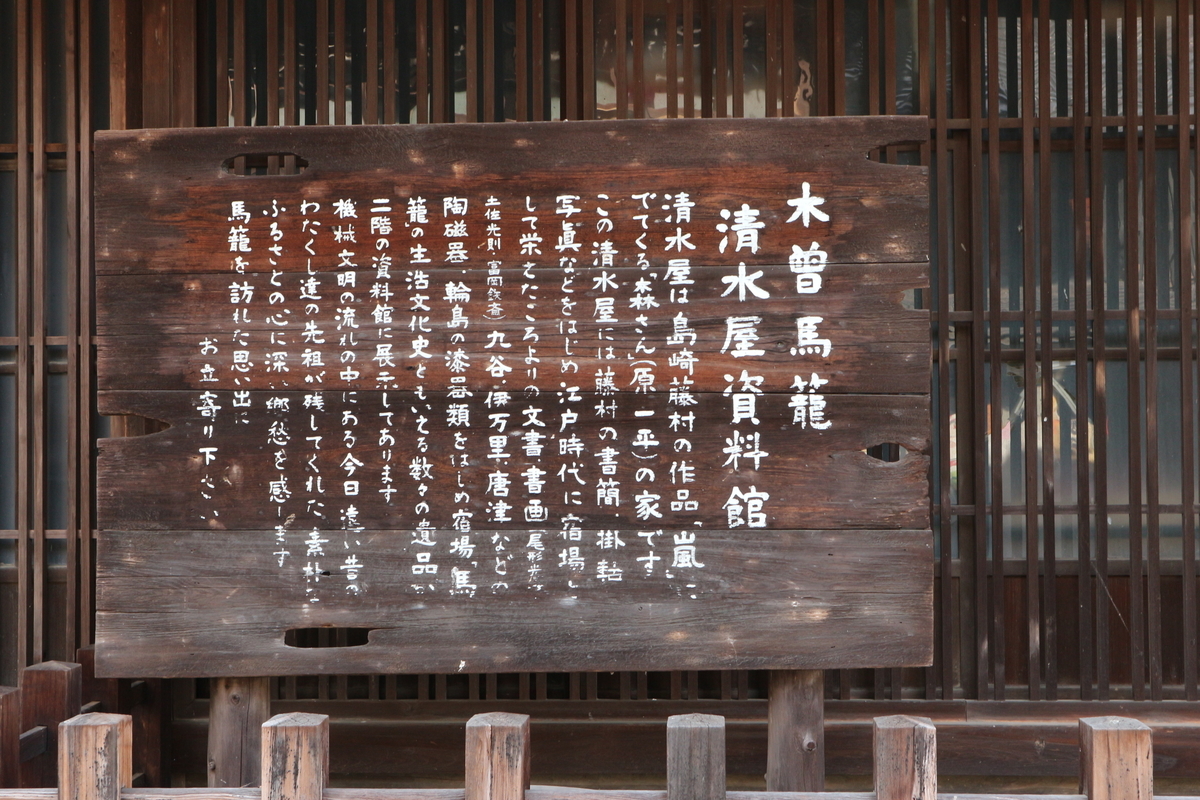 木曽馬籠
清水屋資料館
清水屋は島崎藤村の作品「嵐」に
でてくる「森さん」(原 一平)の家です
この清水屋には藤村の書簡、掛軸
写真などをはじめ江戸時代に宿場と
して栄えたころよりの文書書画(尾形光
土佐光則・富岡鉄斎)九谷、伊万里、唐津などの
陶磁器、輪島の漆器類をはじめ宿場「馬
籠」の生活文化史ともいえる数々の遺品が
二階の資料館に展示してあります
機械文明の流れの中にある今日遠い昔の
わたくし達の先祖が残してくれた素朴な
ふるさとの心に深い郷愁を感じます
馬籠を訪れた思い出に
お立寄り下さい